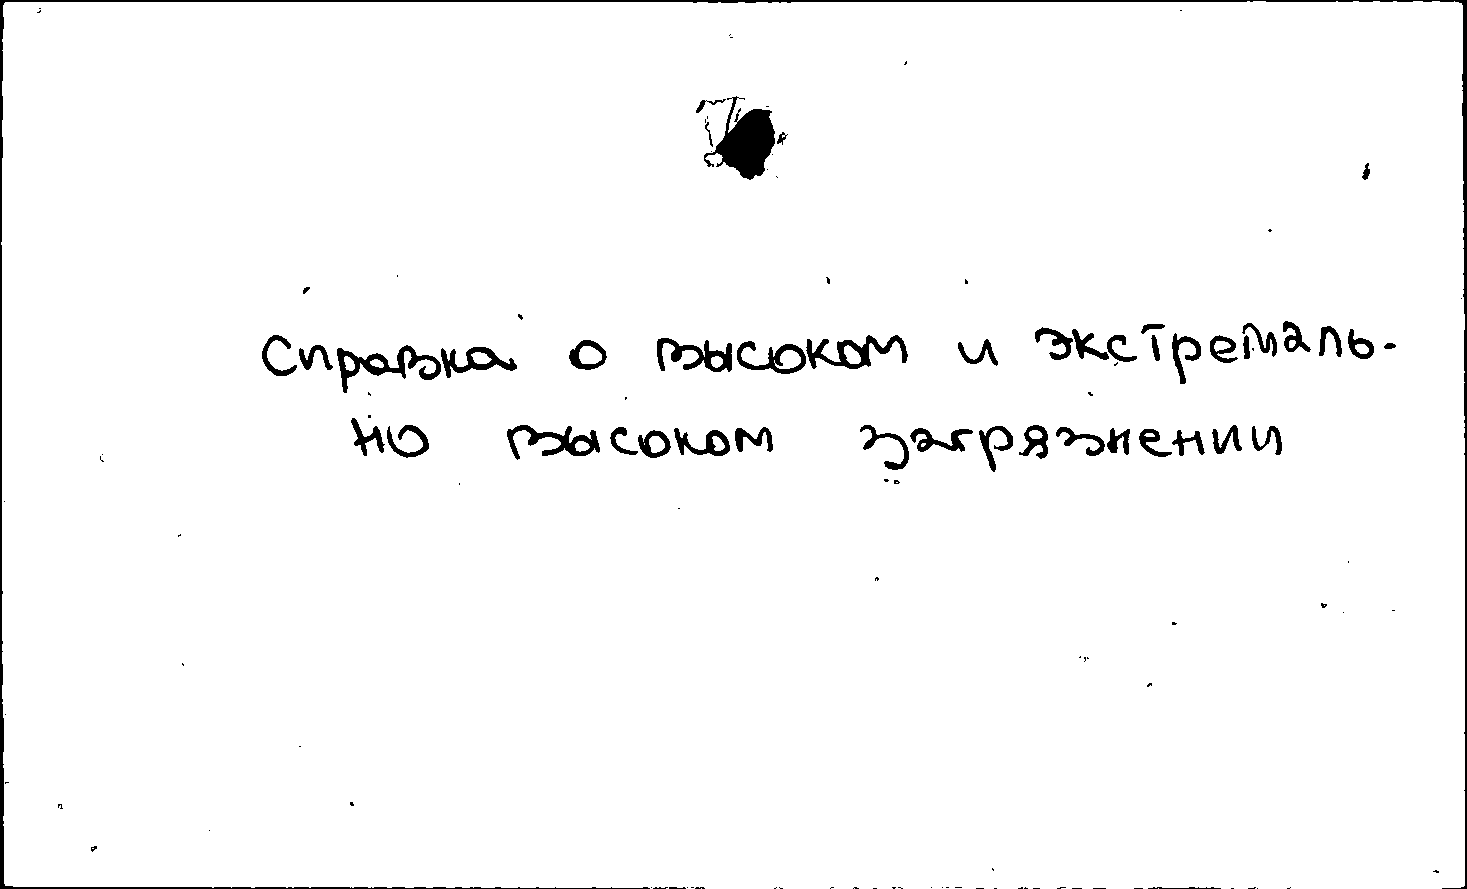 Справка о высоком и экстремаль-
но высоком загрязнении